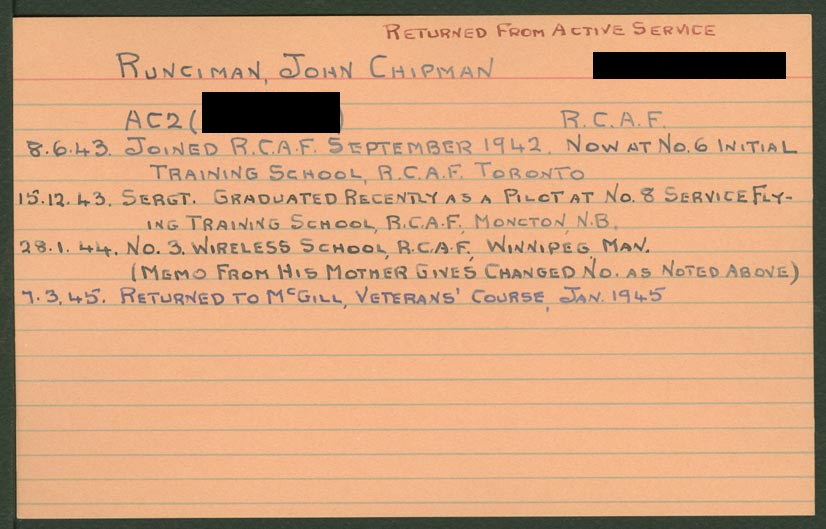 RETURNED FROM ACTIVE SERVICE
RUNCIMAN, JOHN CHIPMAN
AC2 ( ) R.C.A.F.
8.6.43. JOINED R.C.A.F. SEPTEMBER 1942. NOW AT NO.6 INITIAL
TRAINING SCHOOL, R.C.A.F. TORONTO
15.12.43. SERGT. GRADUATED RECENTLY AS A PILOT AT NO. 8 SERVICE FLY-
ING TRAINING SCHOOL, R.C.A.F., MONCTON, N.B.
28.1.44. NO. 3. WIRELESS SCHOOL, R.C.A.F., WINNIPEG, MAN.
(MEMO FROM HIS MOTHER GIVES CHANGED NO. AS NOTED ABOVE)
7.3.45. RETURNED TO MCGILL, VETERANS' COURSE, JAN. 1945